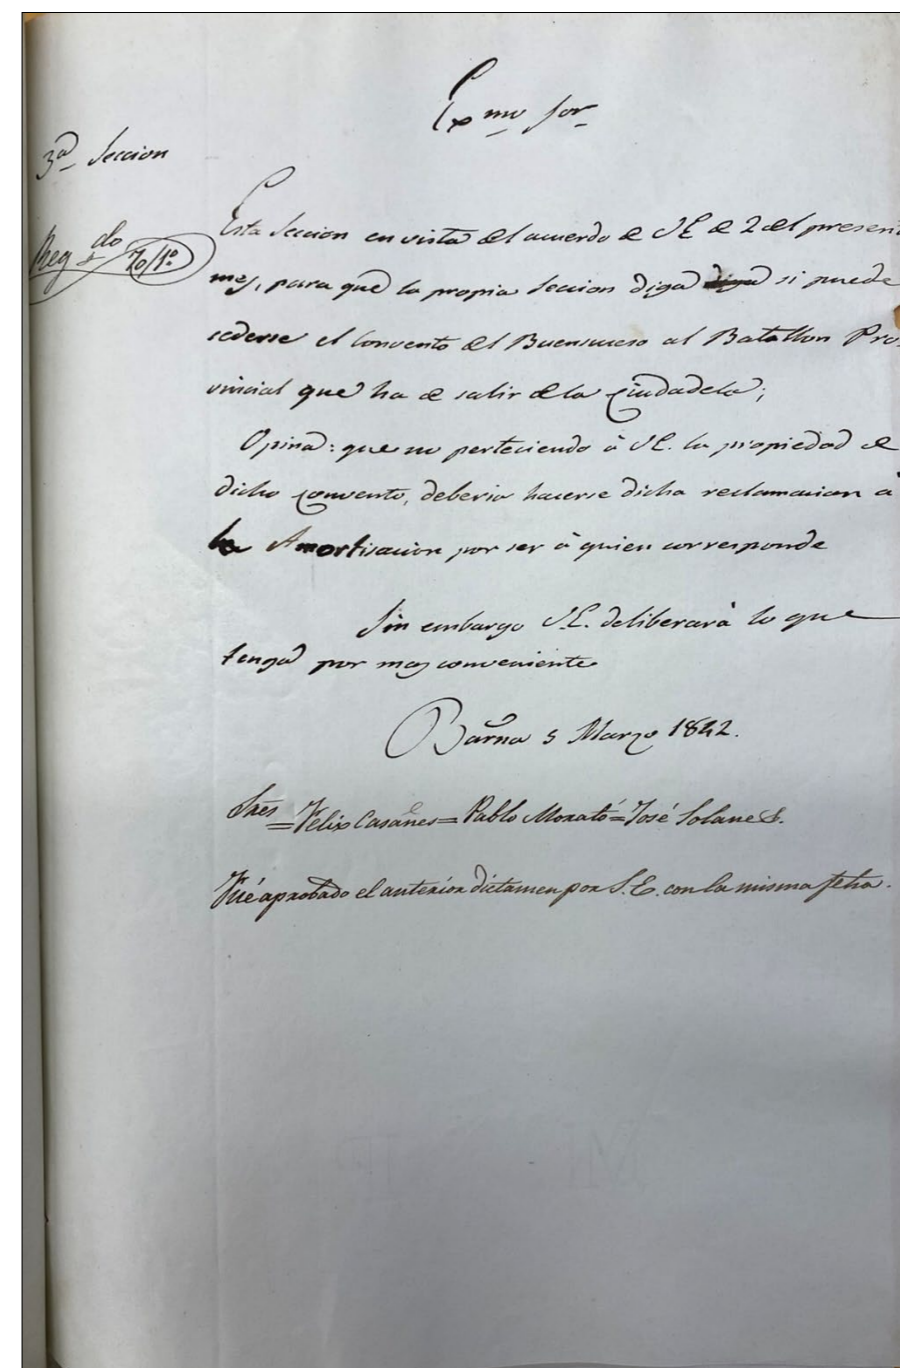 Exmo Sor
3a Seccion
Regdo 70/1º
Esta Seccion en vista del acuerdo de S E de 2 del present
mes, para que la propia Seccion diga si puede
cederse el Convento del Buensuceso al Batallon Pro-
vincial que ha de salir de la Ciudadela;
Opina: que no perteciendo à S E. la propiedad de
dicho convento, deberia hacerse dicha reclamacion à
la Amortisacion por ser à quien corresponde
Sin embargo S.E. deliberarà lo que
tenga por mas conveniente
Barna 5 Marzo 1842.
Sres = Felix Casañes = Pablo Morató = José Solane S.
Fué aprobado el anterior dictamen por S.E. con la misma fcha.